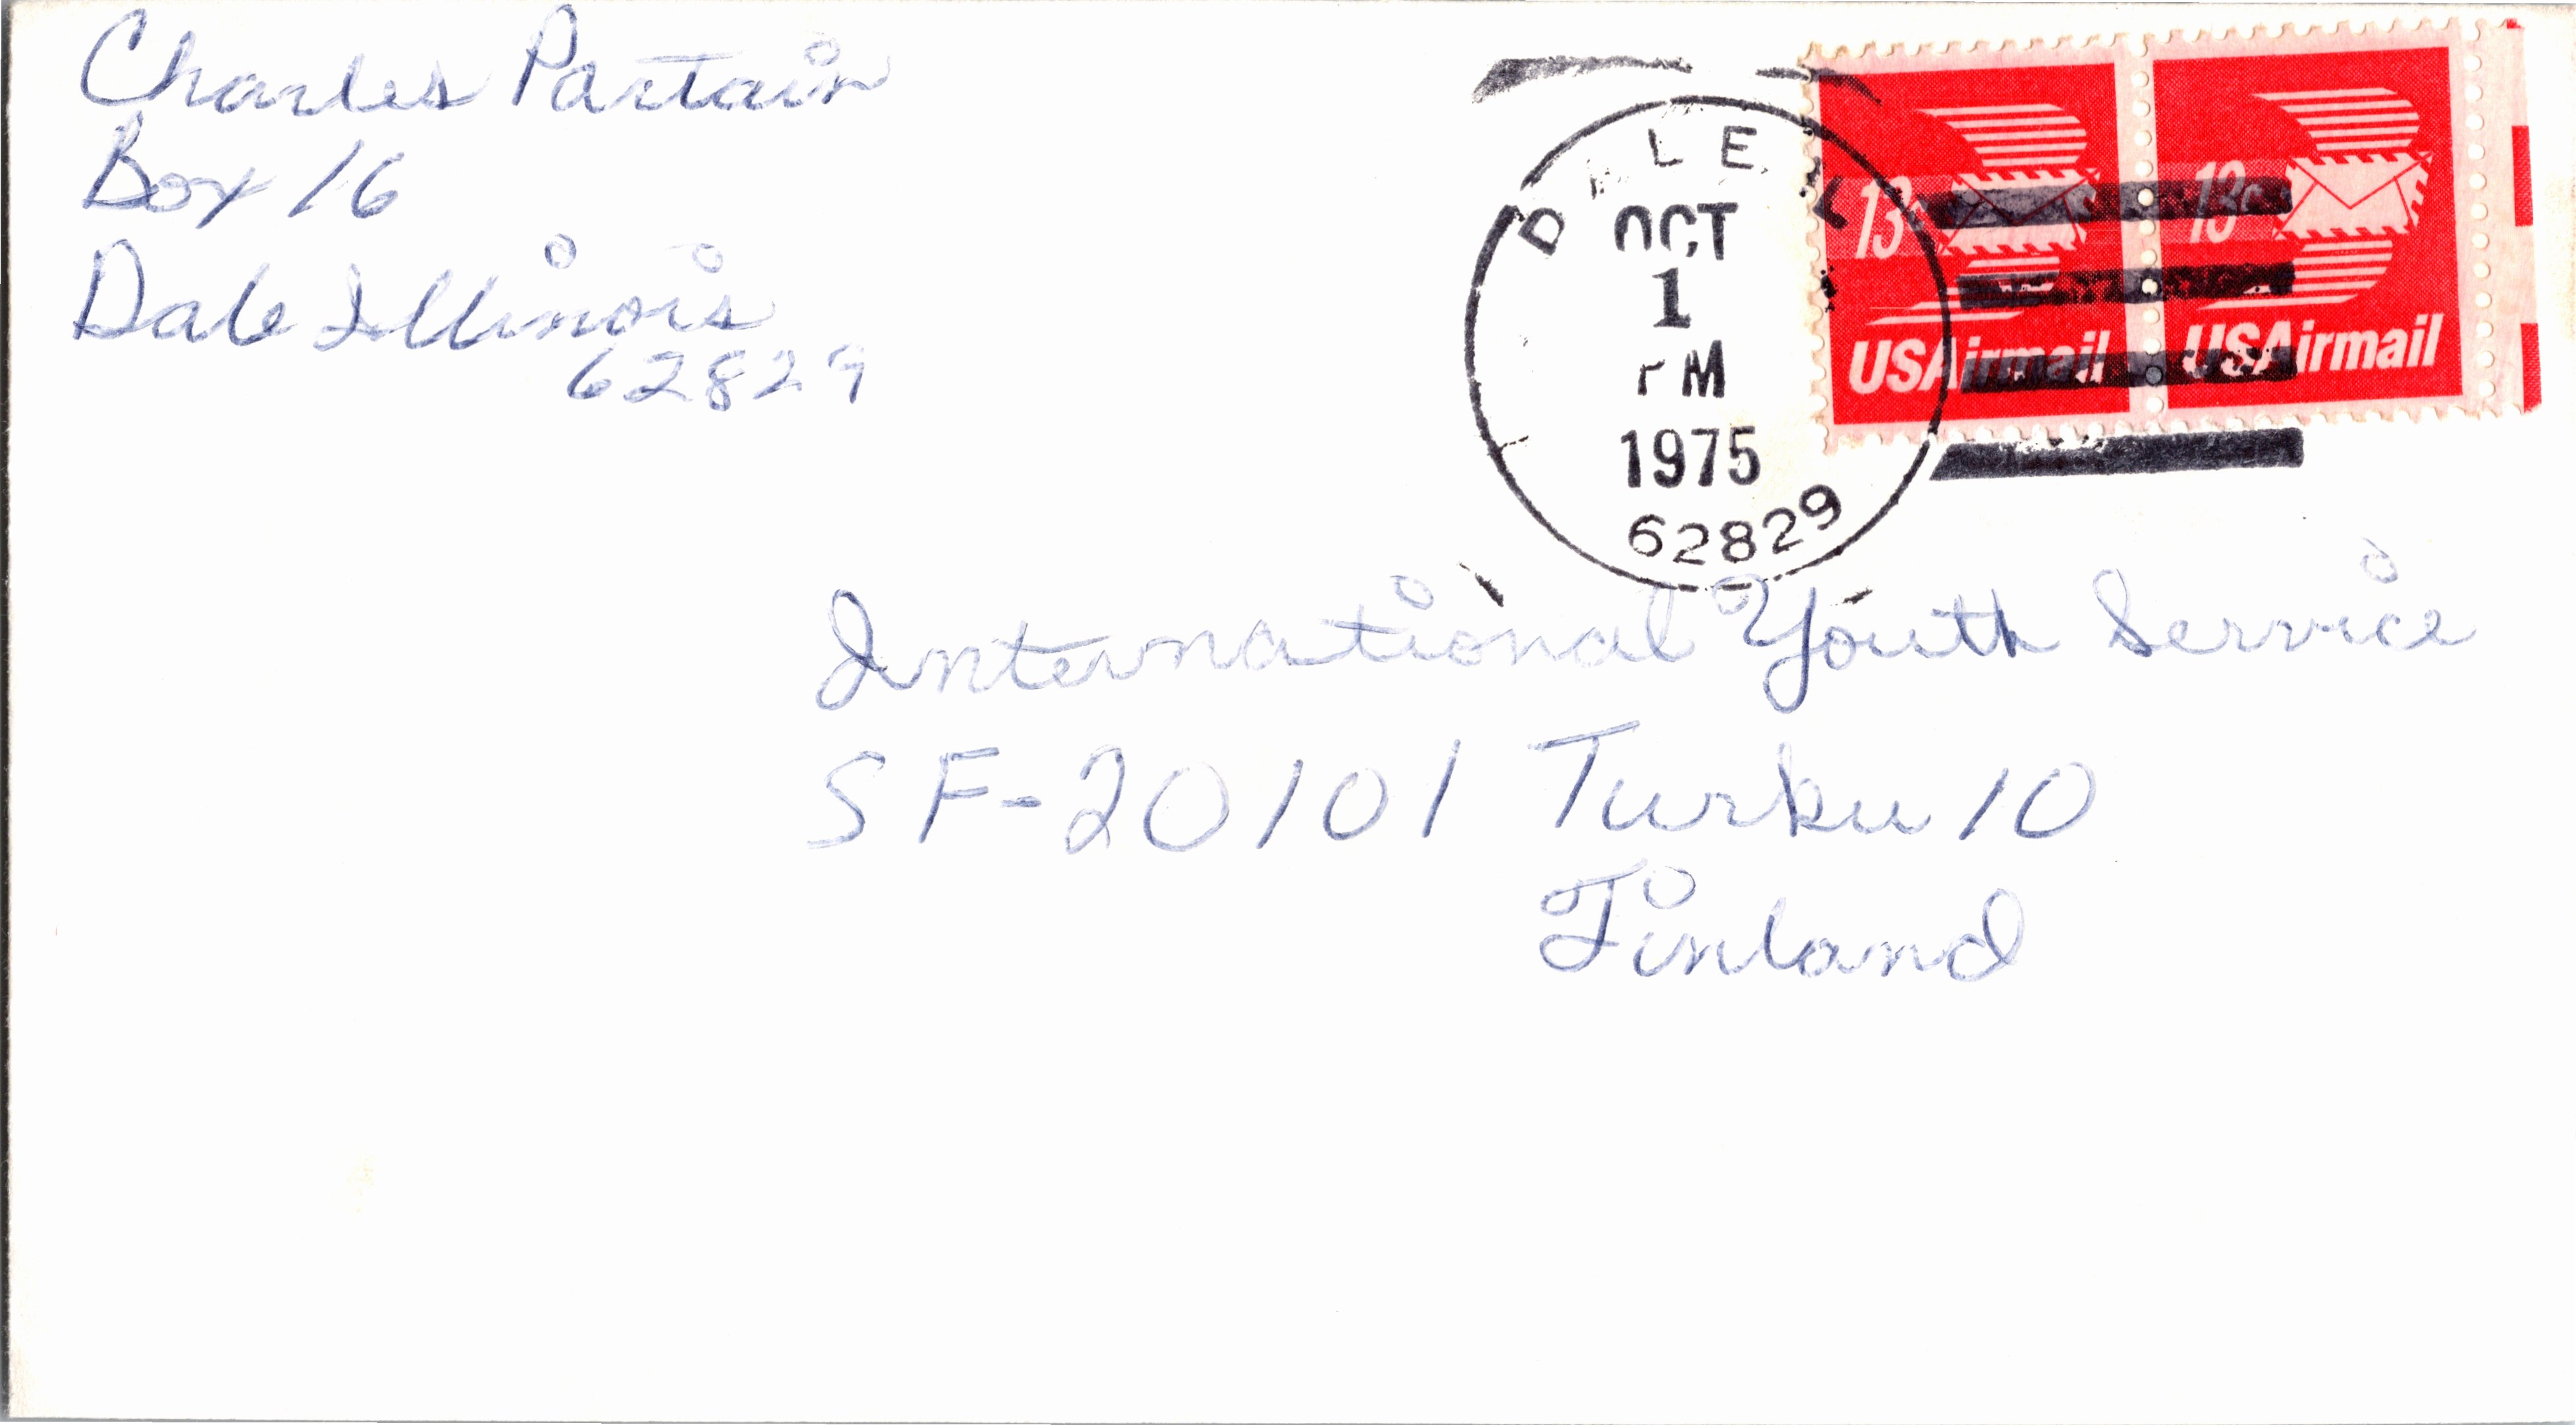 Charles Partain
Box 16
Dale Illinois
62829
DALE
OCT
1
PM
1975
62829
13c
USAirmail
13c
USAirmail
International Youth Service
SF-20101 Turku 10
Finland